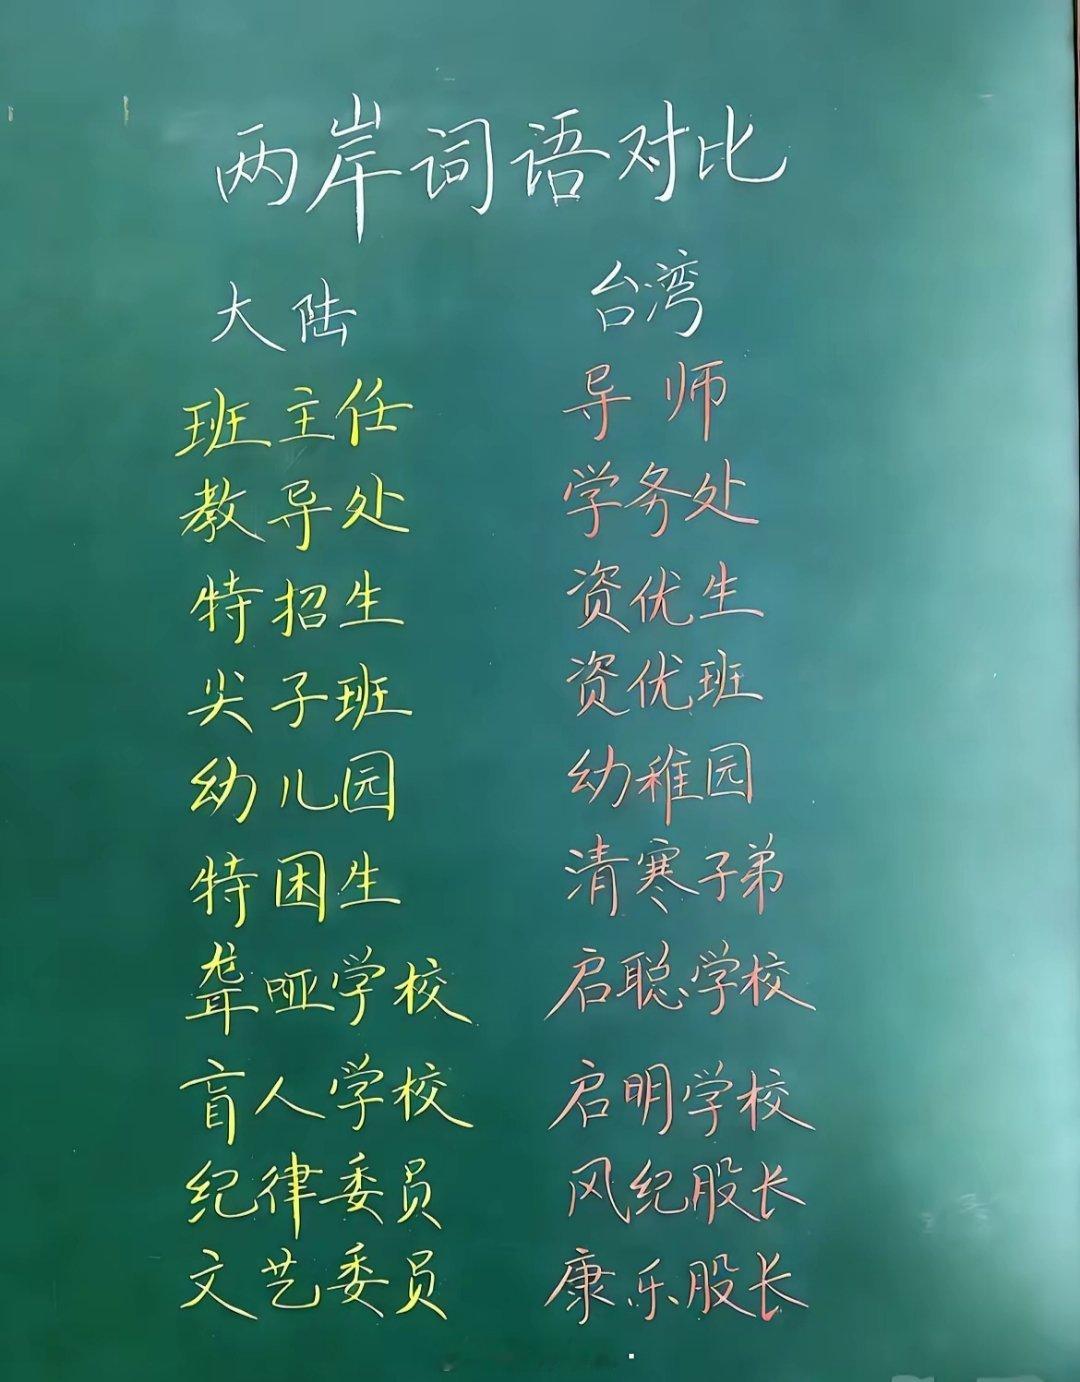 两岸词语对比
大陆 台湾
班主任 导师
教导处 学务处
特招生 资优生
尖子班 资优班
幼儿园 幼稚园
特困生 清寒子弟
聋哑学校 启聪学校
盲人学校 启明学校
纪律委员 风纪股长
文艺委员 康乐股长